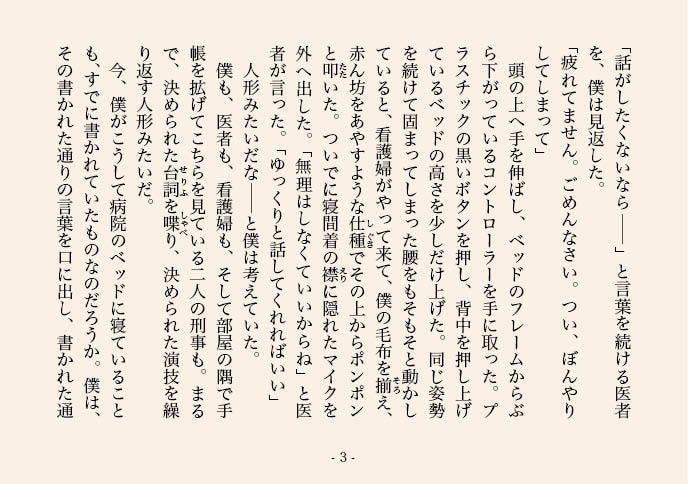 「話がしたくないなら――」と言葉を続ける医者
を、僕は見返した。
「疲れてません。ごめんなさい。つい、ぼんやり
してしまって」
　頭の上へ手を伸ばし、ベッドのフレームからぶ
ら下がっているコントローラーを手に取った。プ
ラスチックの黒いボタンを押し、背中を押し上げ
ているベッドの高さを少しだけ上げた。同じ姿勢
を続けて固まってしまった腰をもそもそと動かし
ていると、看護婦がやって来て、僕の毛布を揃え、
赤ん坊をあやすような仕種でその上からポンポン
と叩いた。ついでに寝間着の襟に隠れたマイクを
外へ出した。「無理はしなくていいからね」と医
者が言った。「ゆっくりと話してくれればいい」
　人形みたいだな――と僕は考えていた。
　僕も、医者も、看護婦も、そして部屋の隅で手
帳を拡げてこちらを見ている二人の刑事も。まる
で、決められた台詞を喋り、決められた演技を繰
り返す人形みたいだ。
　今、僕がこうして病院のベッドに寝ていること
も、すでに書かれていたものなのだろうか。僕は、
その書かれた通りの言葉を口に出し、書かれた通
- 3 -